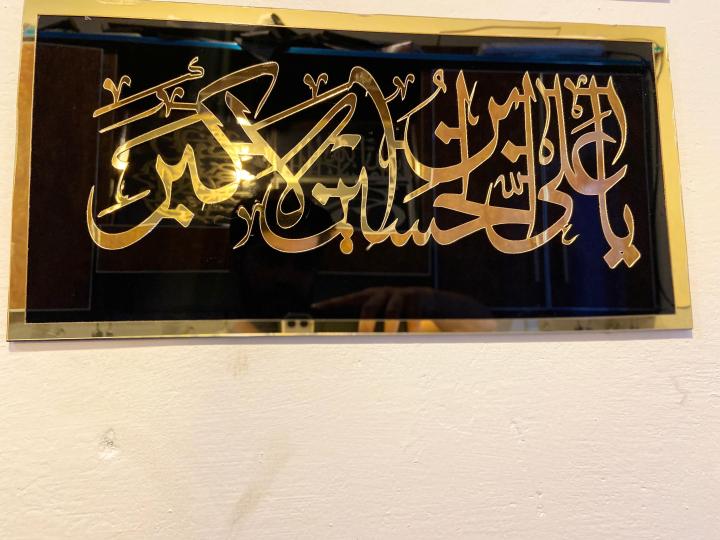 يا علي بن الحسين الاكبر